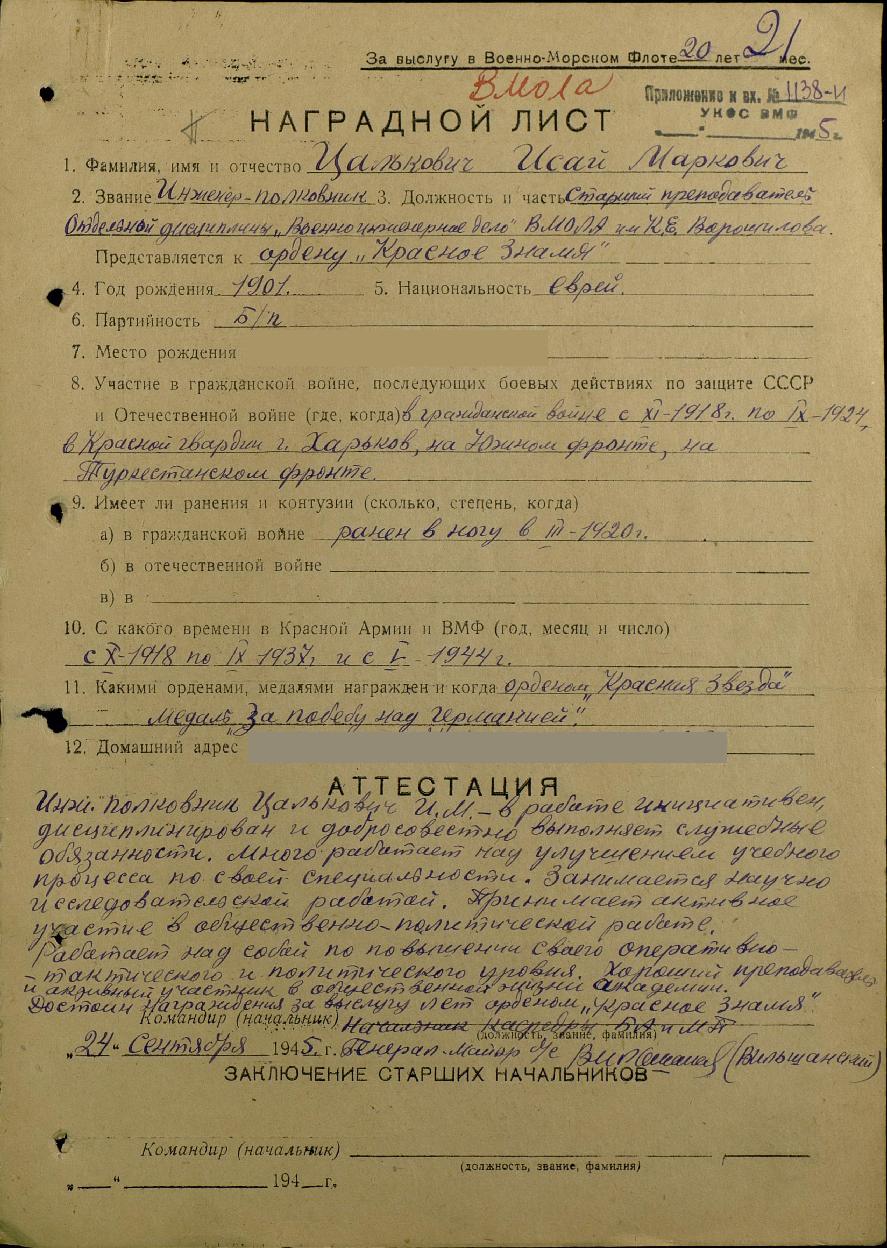 За выслугу в Военно-Морском Флоте 20 лет 21 мес.
ВМОЛА
Приложение к вх. № 1138-и
УКОС ВМФ
1945 г.
НАГРАДНОЙ ЛИСТ
1. Фамилия, имя и отчество Цалькович Исай Маркович
2. Звание Инженер-полковник 3. Должность и часть Старший преподаватель
Отдельной дисциплины „Военноинженерное дело" ВМОЛА им К.Е. Ворошилова.
Представляется к ордену „Красное Знамя"
4. Год рождения 1901. 5. Национальность еврей.
6. Партийность Б/п
7. Место рождения
8. Участие в гражданской войне, последующих боевых действиях по защите СССР
и Отечественной войне (где, когда) в гражданской войне с XI-1918г. по IX-1924,
в Красной гвардии г. Харьков, на Южном фронте, на
Туркестанском фронте.
9. Имеет ли ранения и контузии (сколько, степень, когда)
а) в гражданской войне ранен в ногу в III-1920г.
б) в отечественной войне
в) в
10. С какого времени в Красной Армии и ВМФ (год, месяц и число)
с X-1918 по IX 1937г и с V - 1944 г.
11. Какими орденами, медалями награжден и когда орденом „Красная Звезда"
медаль „За победу над Германией".
12. Домашний адрес
АТТЕСТАЦИЯ
Инж. полковник Цалькович И.М. - в работе инициативен,
дисциплинирован и добросовестно выполняет служебные
обязанности. Много работает над улучшением учебного
процесса по своей специальности. Занимается научно
исследовательской работой. Принимает активное
участие в общественно-политической работе.
Работает над собой по повышении своего оперативно-
тактического и политического уровня. Хороший преподаватель
и активный участник в общественной жизни академии.
Достоин награждения за выслугу лет орденом „Красное Знамя".
Командир (начальник) Начальник Кафедры БА и МП
(должность, звание, фамилия)
„24" Сентября 1945 г. Генерал-майор б/с (Вильшанский)
ЗАКЛЮЧЕНИЕ СТАРШИХ НАЧАЛЬНИКОВ
Командир (начальник)
(должность, звание, фамилия)
„ " 194 г.